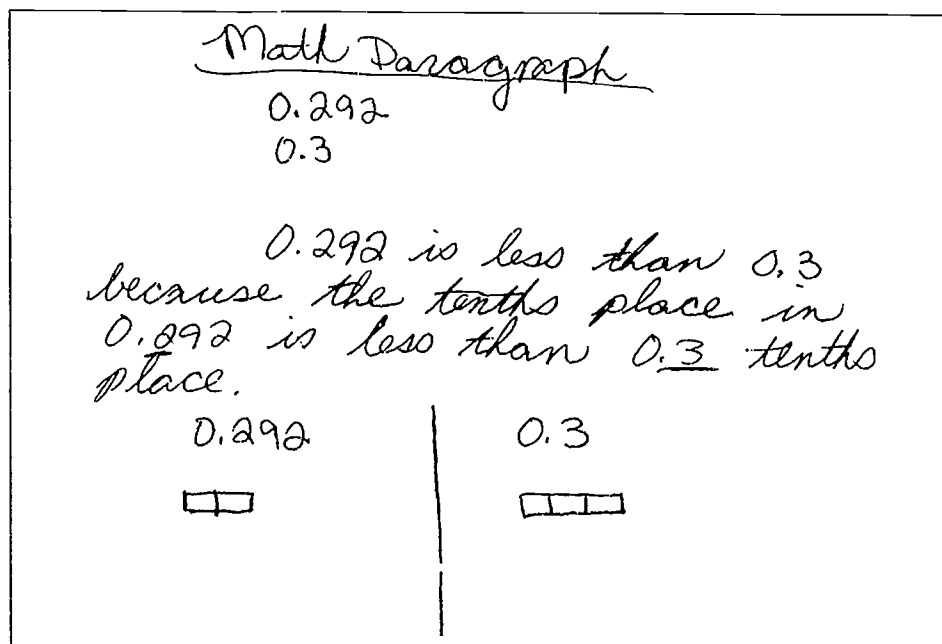 Math Paragraph
0.292
0.3
0.292 is less than 0.3
because the tenths place in
0.292 is less than 0.3 tenths
place.
0.292 0.3